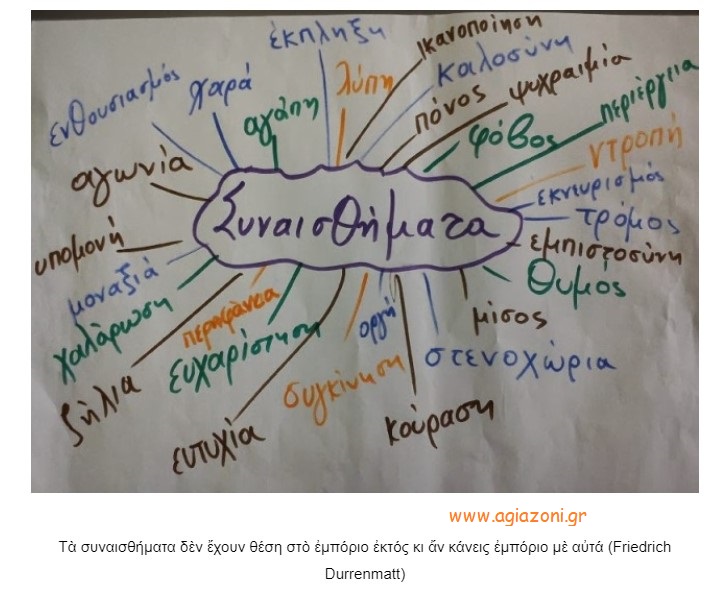 έκπληξη
ικανοποίηση
ενθουσιασμός
χαρά
αγάπη
λύπη
καλοσύνη
πόνος
ψυχραιμία
περιέργεια
φόβος
ντροπή
αγωνία
εκνευρισμός
Συναισθήματα
τρόμος
υπομονή
εμπιστοσύνη
μοναξιά
θυμός
χαλάρωση
περηφάνεια
οργή
μίσος
ζήλια
ευχαρίστηση
συγκίνηση
στενοχώρια
ευτυχία
κούραση
www.agiazoni.gr
Τὰ συναισθήματα δὲν ἔχουν θέση στὸ ἐμπόριο ἐκτός κι ἄν κάνεις ἐμπόριο μὲ αὐτά (Friedrich
Durrenmatt)